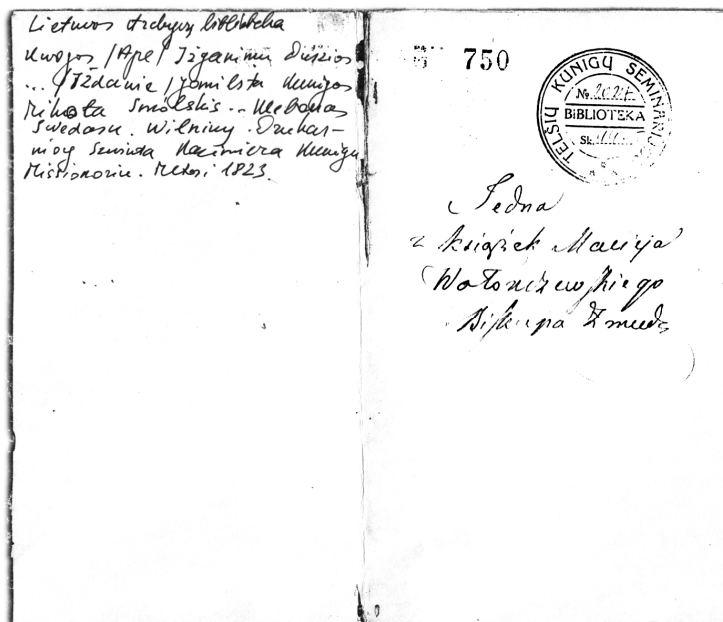 Lietuvos
Knygos / Apej Izganimu Duszios
... / Iżdawie / jomilsta Kunigos
Mikoła Smolskis .. Klebonas
Swedasu. Wilniuy. Drukar-
nioy Szwinta Kazimiera Kunigu
Missionoriu. Metosi 1823.
750
TELŠIŲ KUNIGŲ SEMINARIJOS
No
BIBLIOTEKA
Sk.
Jedna
z książek Macieja
Wołonczewskiego
Biskupa Żmudz